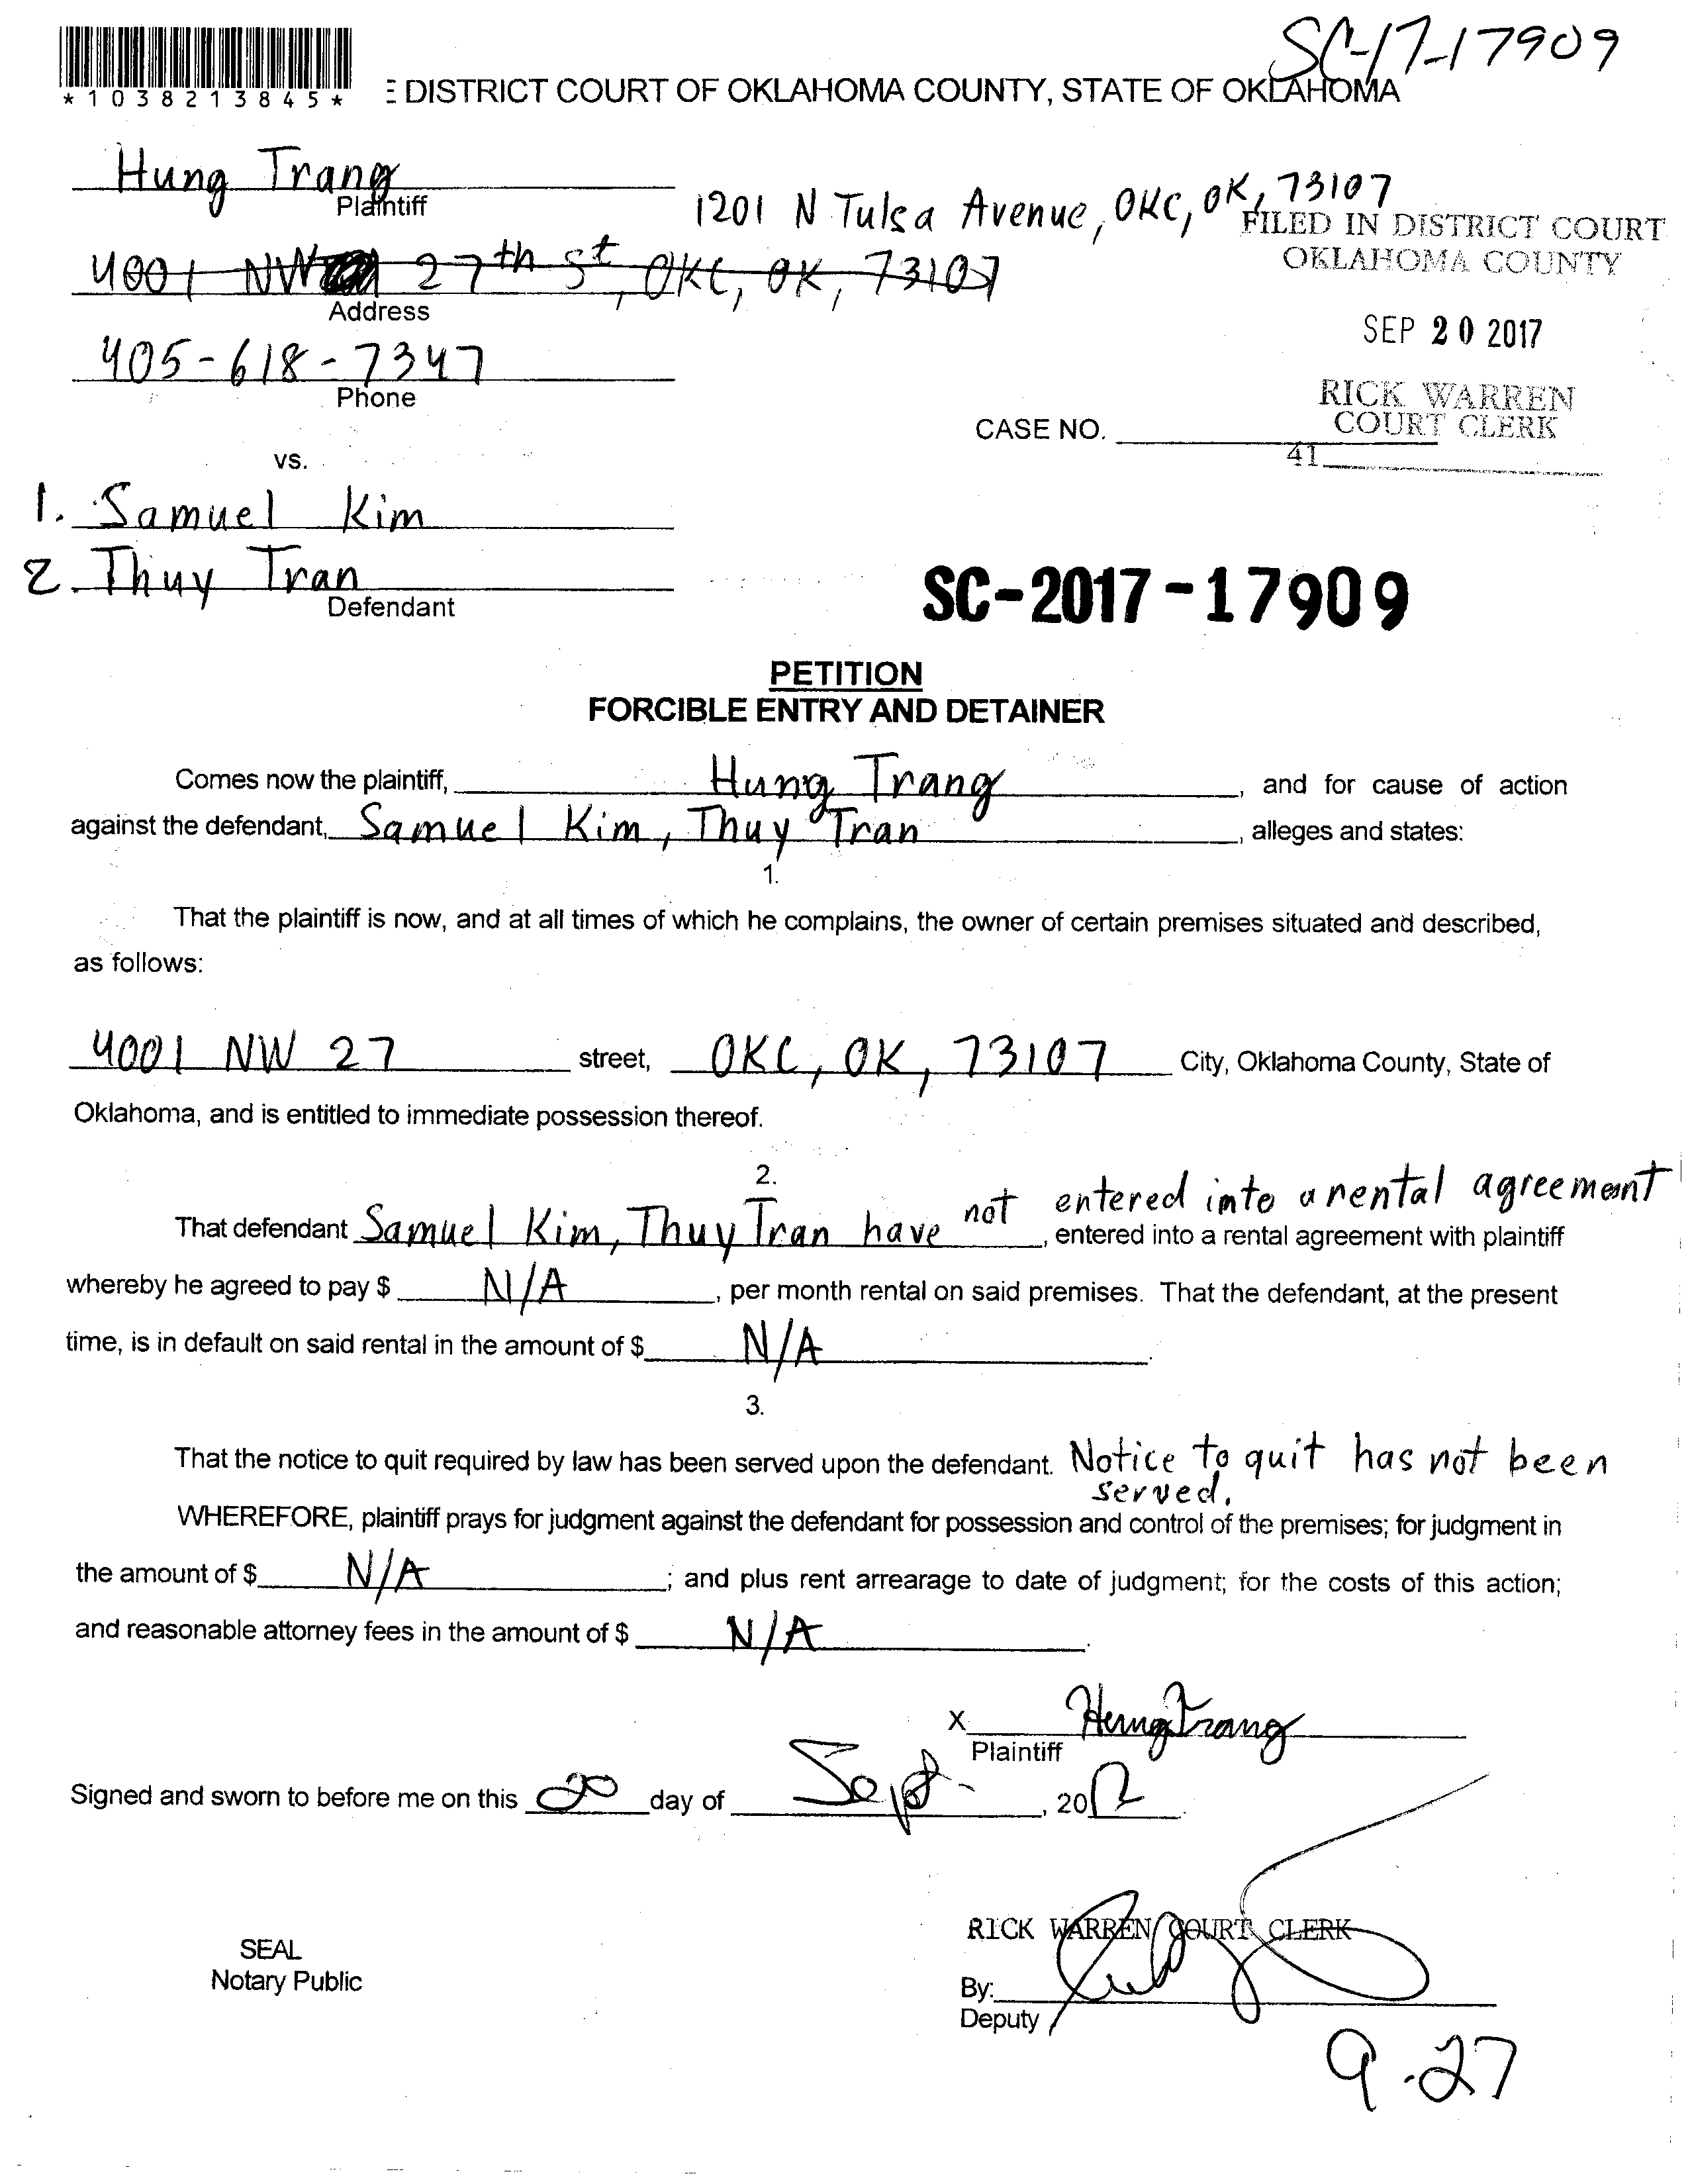 SC-17-17909
*1038213845*
E DISTRICT COURT OF OKLAHOMA COUNTY, STATE OF OKLAHOMA
Hung Trang
Plaintiff
1201 N Tulsa Avenue, OKC, OK, 73107
FILED IN DISTRICT COURT
OKLAHOMA COUNTY
4001 NW 27th St, OKC, OK, 73107
Address
SEP 20 2017
405-618-7347
Phone
RICK WARREN
COURT CLERK
CASE NO.
41
vs.
1. Samuel Kim
2. Thuy Tran
Defendant
SC-2017-17909
PETITION
FORCIBLE ENTRY AND DETAINER
Comes now the plaintiff, Hung Trang, and for cause of action
against the defendant, Samuel Kim, Thuy Tran, alleges and states:
1.
That the plaintiff is now, and at all times of which he complains, the owner of certain premises situated and described,
as follows:
4001 NW 27 street, OKC, OK, 73107 City, Oklahoma County, State of
Oklahoma, and is entitled to immediate possession thereof.
2.
not entered into a rental agreement
That defendant Samuel Kim, Thuy Tran have, entered into a rental agreement with plaintiff
whereby he agreed to pay $ N/A, per month rental on said premises. That the defendant, at the present
time, is in default on said rental in the amount of $ N/A.
3.
That the notice to quit required by law has been served upon the defendant. Notice to quit has not been
served.
WHEREFORE, plaintiff prays for judgment against the defendant for possession and control of the premises; for judgment in
the amount of $ N/A; and plus rent arrearage to date of judgment; for the costs of this action;
and reasonable attorney fees in the amount of $ N/A.
X Hung Trang
Plaintiff
Signed and sworn to before me on this 20 day of Sept, 2017.
RICK WARREN COURT CLERK
SEAL
Notary Public
By:
Deputy
9-27